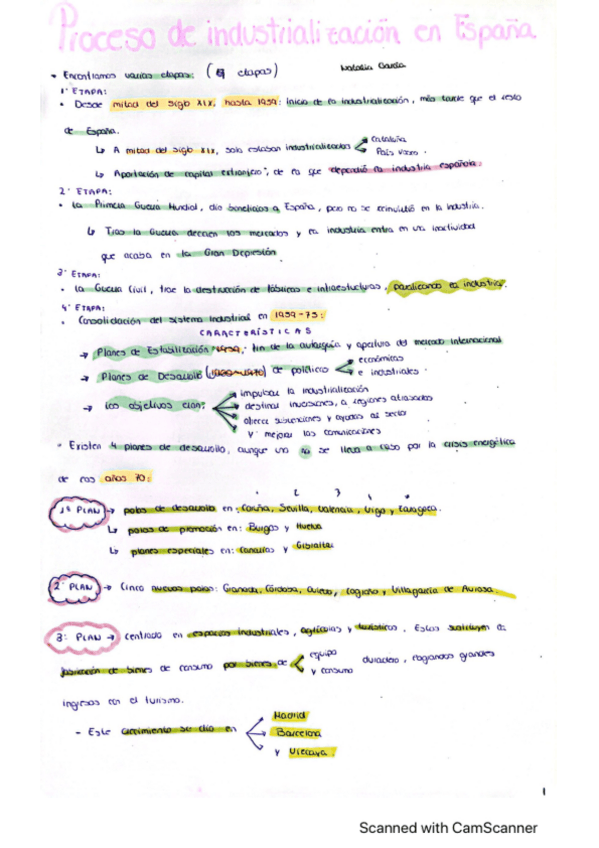 Proceso de industrialización en España
• Encontramos varias etapas: ( etapas) Natalia García
1ª ETAPA:
• Desde mitad del siglo XIX, hasta 1959: inicio de la industrialización, más tarde que el resto
de España.
↳ A mitad del siglo XIX, solo estaban industrializados Cataluña
País vasco.
↳ Aportación de capital extranjero, de la que dependió la industria española.
2ª ETAPA:
• La Primera Guerra Mundial, dio beneficios a España, pero no se reinvirtió en la industria.
↳ Tras la Guerra decaen los mercados y la industria entra en una inactividad
que acaba en la Gran Depresión
3ª ETAPA:
• La Guerra Civil, trae la destrucción de fábricas e infraestucturas, paralizando la industria.
4ª ETAPA:
• Consolidación del sistema industrial en 1959-75:
CARACTERÍSTICAS
→ Planes de Estabilización 1959, fin de la autarquía y apertura del mercado internacional
→ Planes de Desarrollo de políticas económicas
e industriales.
→ los objetivos eran: impulsar la industrialización
destinar inversiones, a regiones atrasadas
ofrecer subvenciones y ayudas al sector
y mejorar las comunicaciones
- Existen 4 planes de desarrollo, aunque uno no se lleva a cabo por la crisis energética
de los años 70:
1º PLAN → polos de desarrollo en: Coruña, Sevilla, Valencia, Vigo y Zaragoza.
↳ polos de promoción en: Burgos y Huelva
↳ planes especiales en: Canarias y Gibraltar
2º PLAN → Cinco nuevos polos: Granada, Córdoba, Oviedo, Logroño y Villagarcía de
3º PLAN → centrado en espacios industriales, agrícolas y turísticos. Estos sustituyen la
fabricación de bienes de consumo por bienes de equipo
y consumo duradero, llegando grandes
ingresos con el turismo.
- Este crecimiento se dio en Madrid
Barcelona
y Vizcaya.
1
Scanned with CamScanner